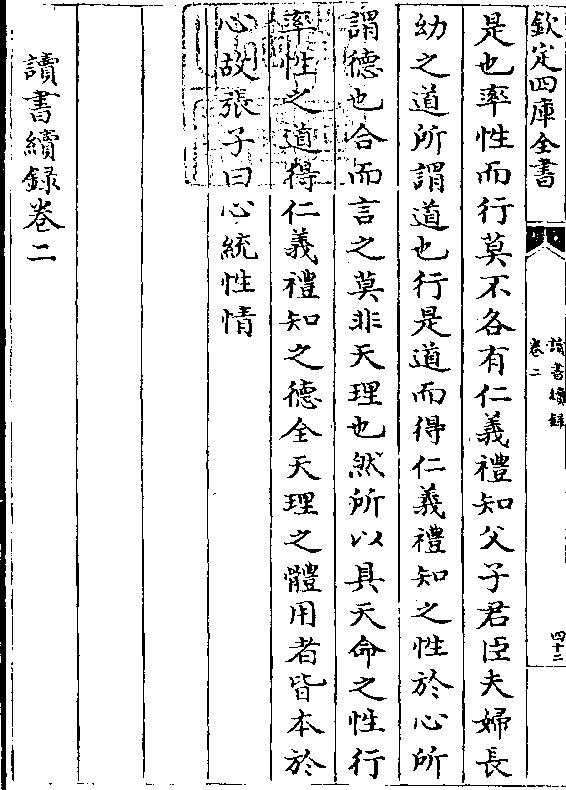 欽定四庫全書
讀書續録
卷二
四十二
是也率性而行莫不各有仁義禮知父子君臣夫婦長
幼之道所謂道也行是道而得仁義禮知之性於心所
謂德也合而言之莫非天理也然所以具天命之性行
率性之道得仁義禮知之德全天理之體用者皆本於
心故張子曰心統性情
讀書續録卷二